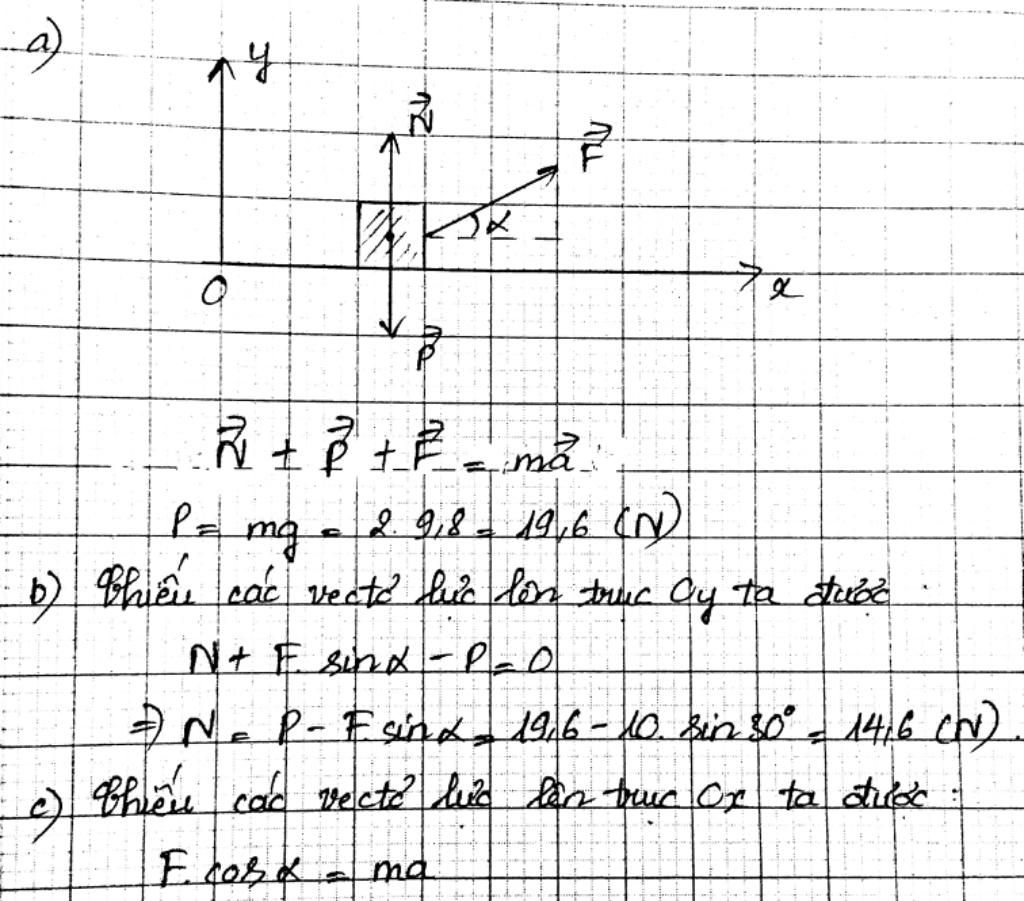 a)
y
N⃗
F⃗
α
O
x
P⃗
N⃗ + P⃗ + F⃗ = ma⃗
P = mg = 2. 9,8 = 19,6 (N)
b) Chiếu các vectơ lực lên trục Oy ta được
N + F. sinα - P = 0
⇒ N = P - F sinα = 19,6 - 10. sin 30° = 14,6 (N).
c) Chiếu các vectơ lực lên trục Ox ta được :
F. cos α = ma